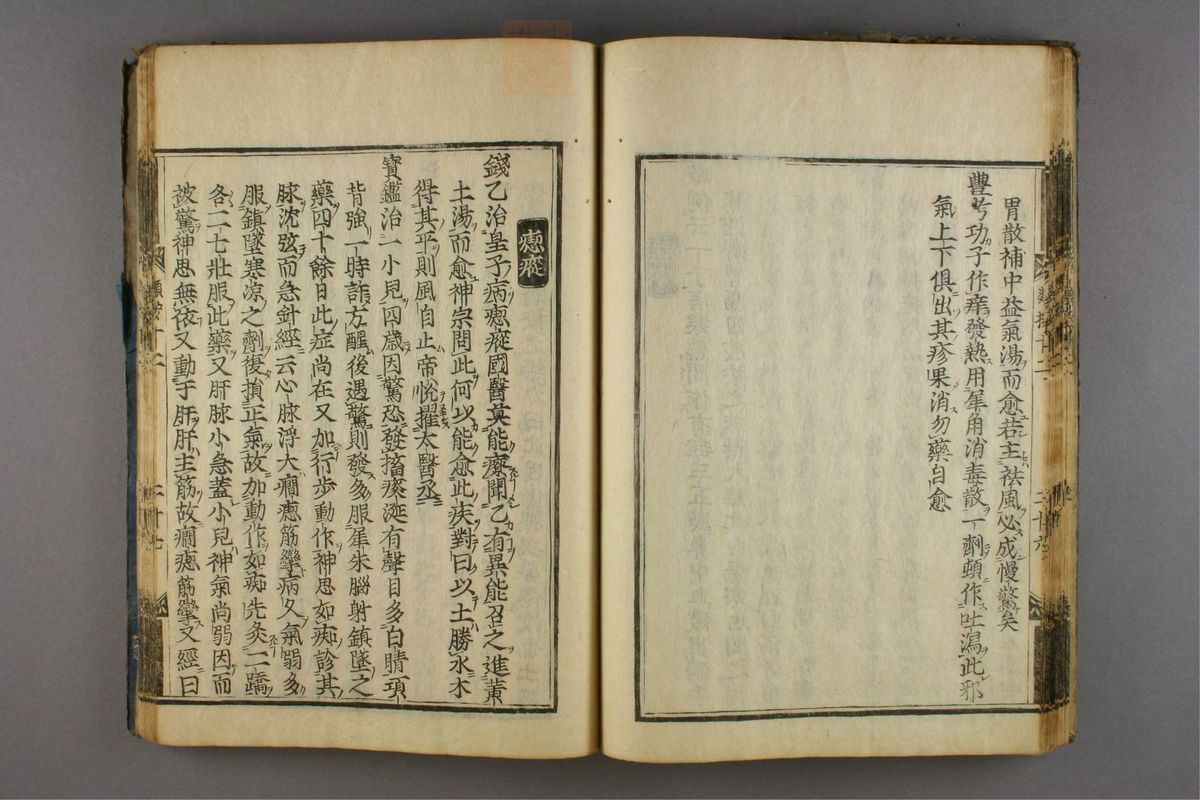 胃散補中益氣湯而愈若主祛風必成慢驚矣
豊芍功子作痒發熱用犀角消毒散一劑頓作吐瀉此邪
氣上下俱出其疹果消勿藥自愈
瘛瘲
錢乙治皇子病瘛瘲國醫莫能療聞乙有異能召之進黃
土湯而愈神宗問此何以能愈此疾對曰以土勝水木
得其平則風自止帝悅擢太醫丞
寳鑑治一小兒四歲因驚恐發搐痰涎有聲目多白睛項
背強一時許方醒後遇驚則發多服犀朱腦射鎮墜之
藥四十餘日此症尚在又加行步動作神思如痴診其
脉沈弦而急針經云心脉浮大癇瘛筋攣病久氣弱多
服鎮墜寒凉之劑復損正氣故加動作如痴先灸二蹻
各二七壯服此藥又肝脉小急蓋小兒神氣尚弱因而
被驚神思無依又動于肝肝主筋故癇瘛筋攣又經曰
類按十二
二十七